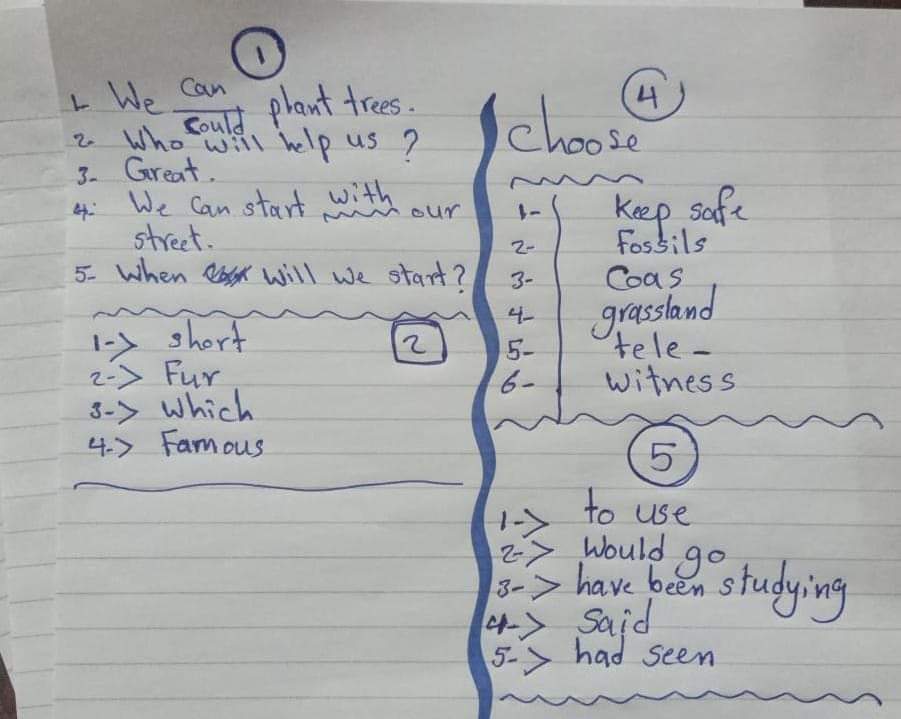 1
1- We can plant trees.
could
2- Who will help us ?
3- Great.
4- We can start with our
street.
5- When will we start?
2
1-> short
2-> Fur
3-> Which
4-> Famous
4
Choose
1- Keep safe
2- Fossils
3- Coas
4- grassland
5- tele -
6- Witness
5
1-> to use
2-> Would go
3-> have been studying
4-> Said
5-> had seen